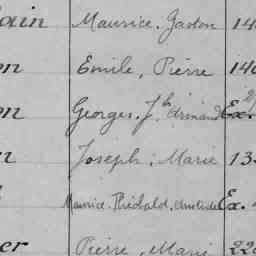 ain Maurice. Gaston 14
on Emile, Pierre 140
on Georges. Jh Armand Ex.
n Joseph. Marie 13
Maurice. Théobald. Amédée Ex.
er Pierre, Marie 22